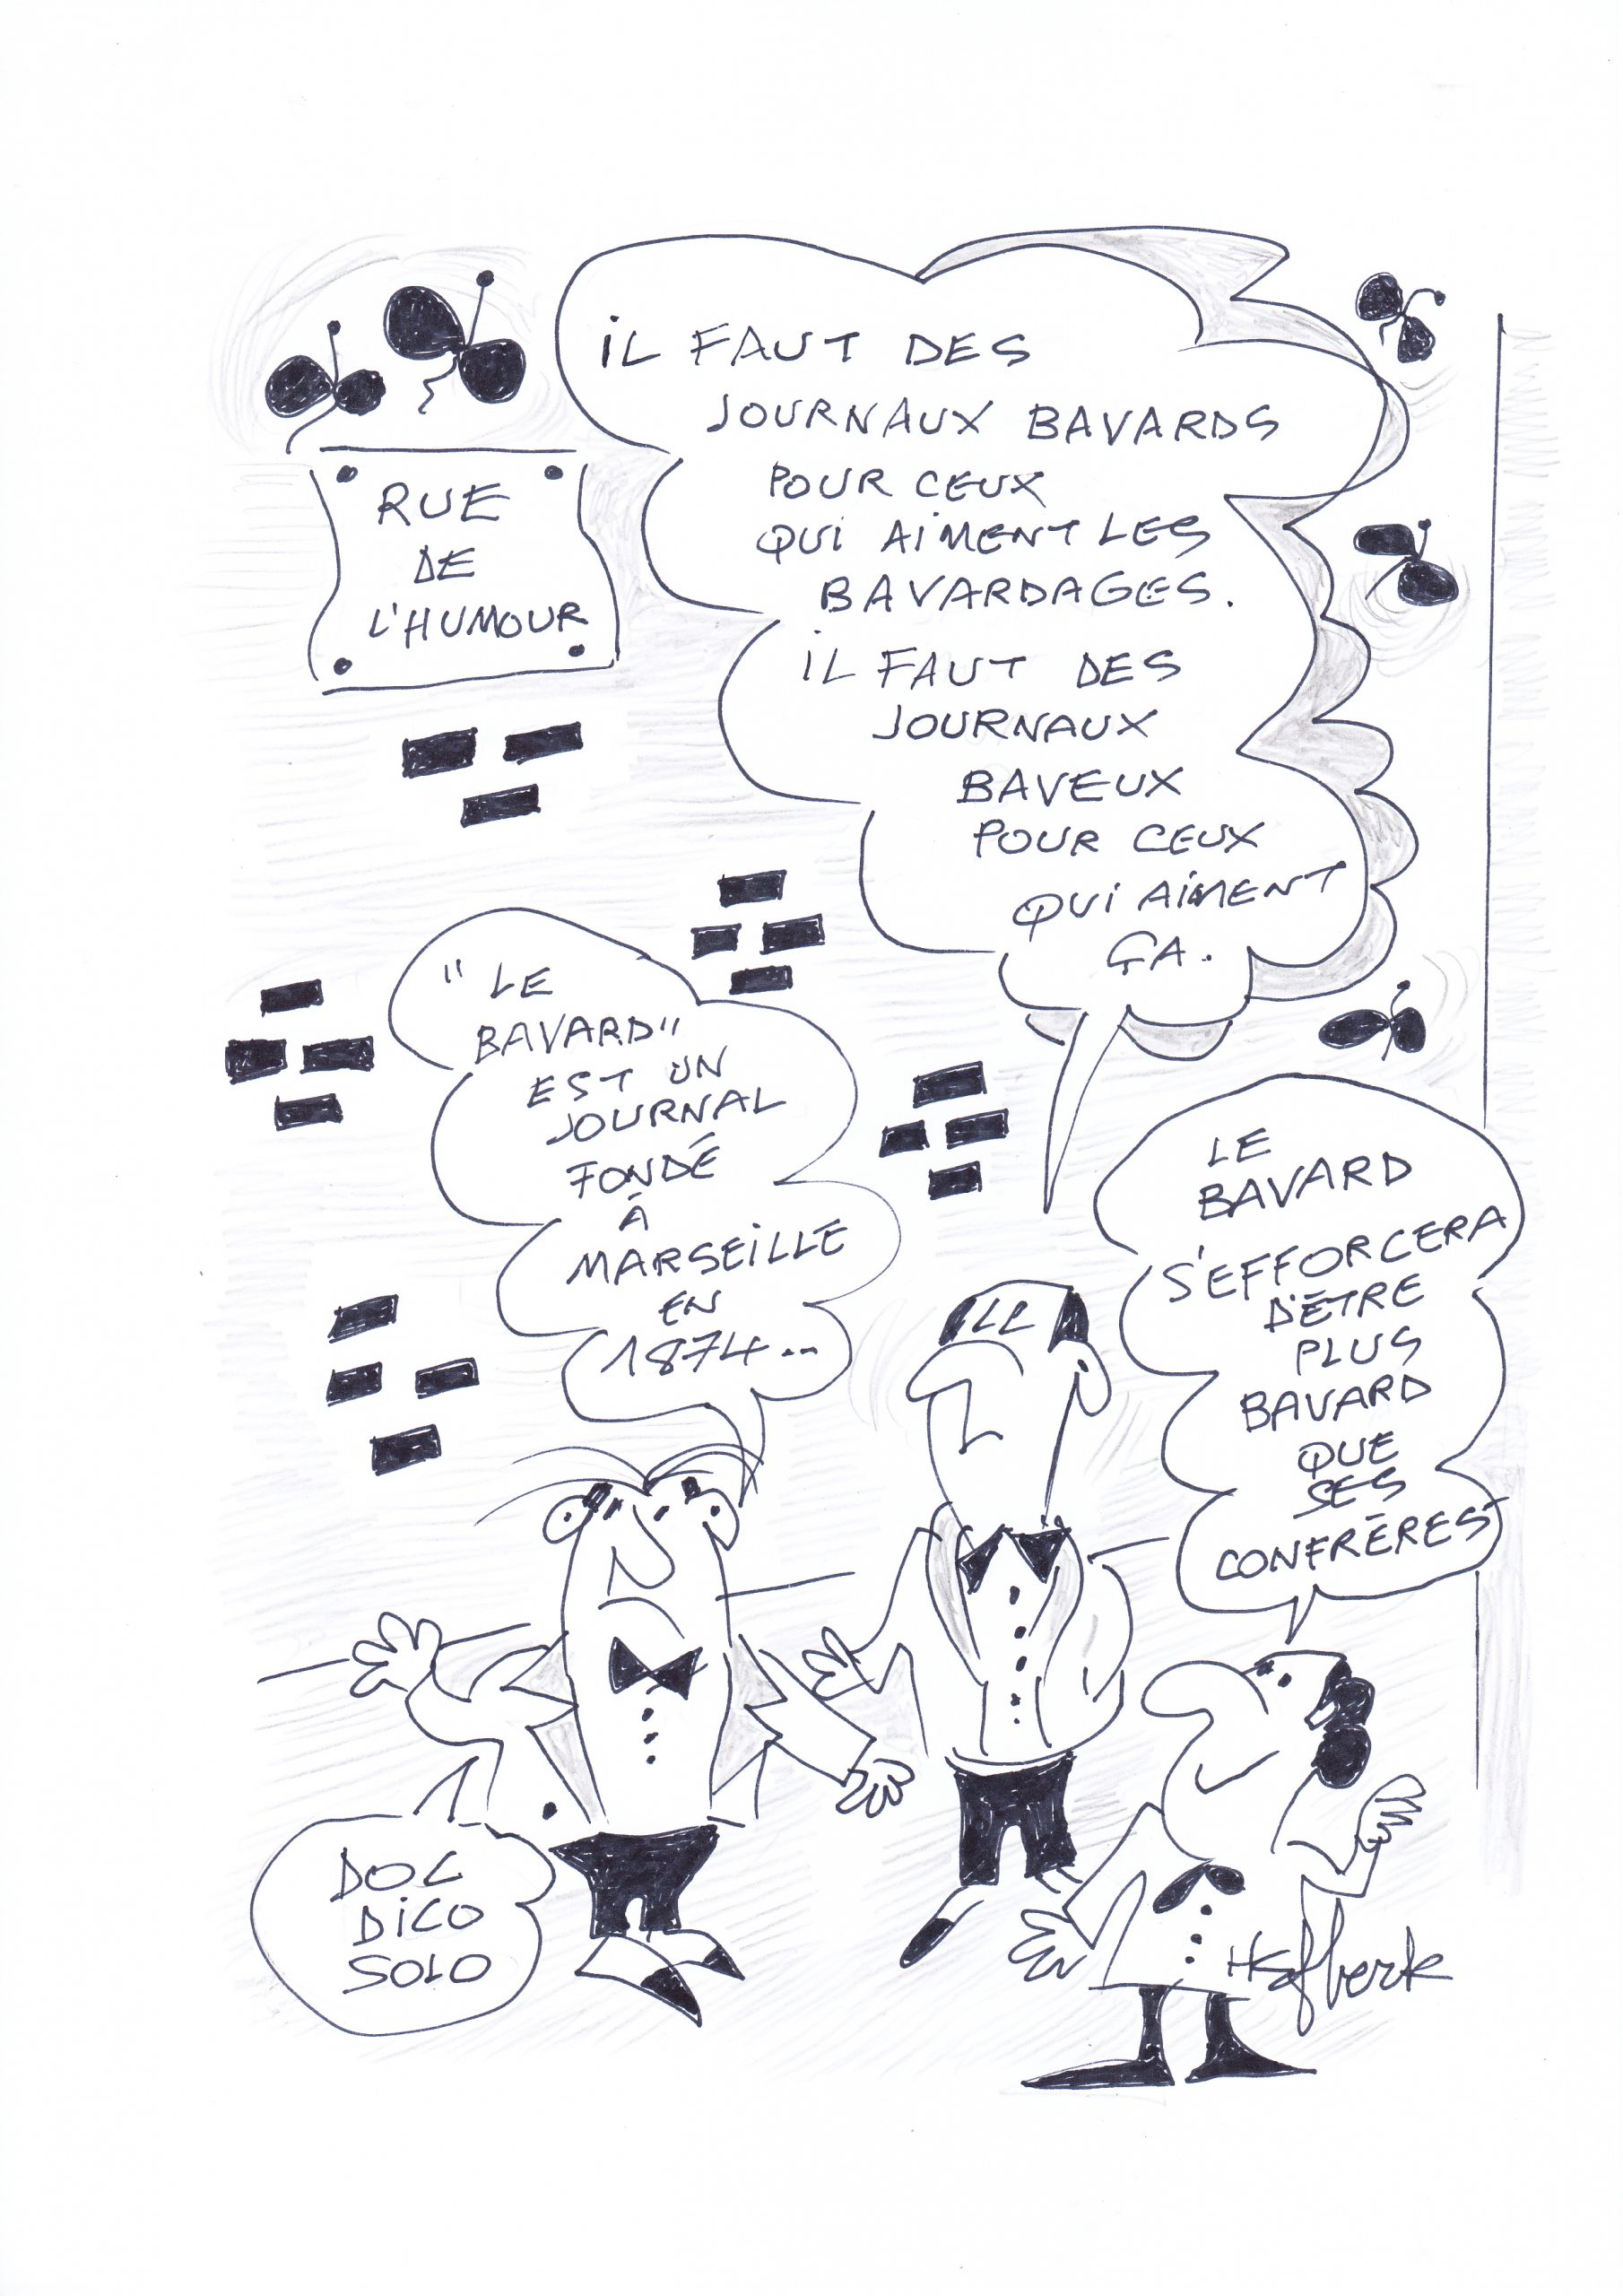 iL FAUT DES
JOURNAUX BAVARDS
POUR CEUX
QUi AiMENT LES
BAVARDAGES.
iL FAUT DES
JOURNAUX
BAVEUX
POUR CEUX
QUi AiMENT
ÇA.
RUE
DE
L'HUMOUR
"LE
BAVARD"
EST UN
JOURNAL
FONDÉ
À
MARSEiLLE
EN
1874...
LE
BAVARD
S'EFFORCERA
D'ÊTRE
PLUS
BAVARD
QUE
SES
CONFRÈRES
DOC
DiCO
SOLO